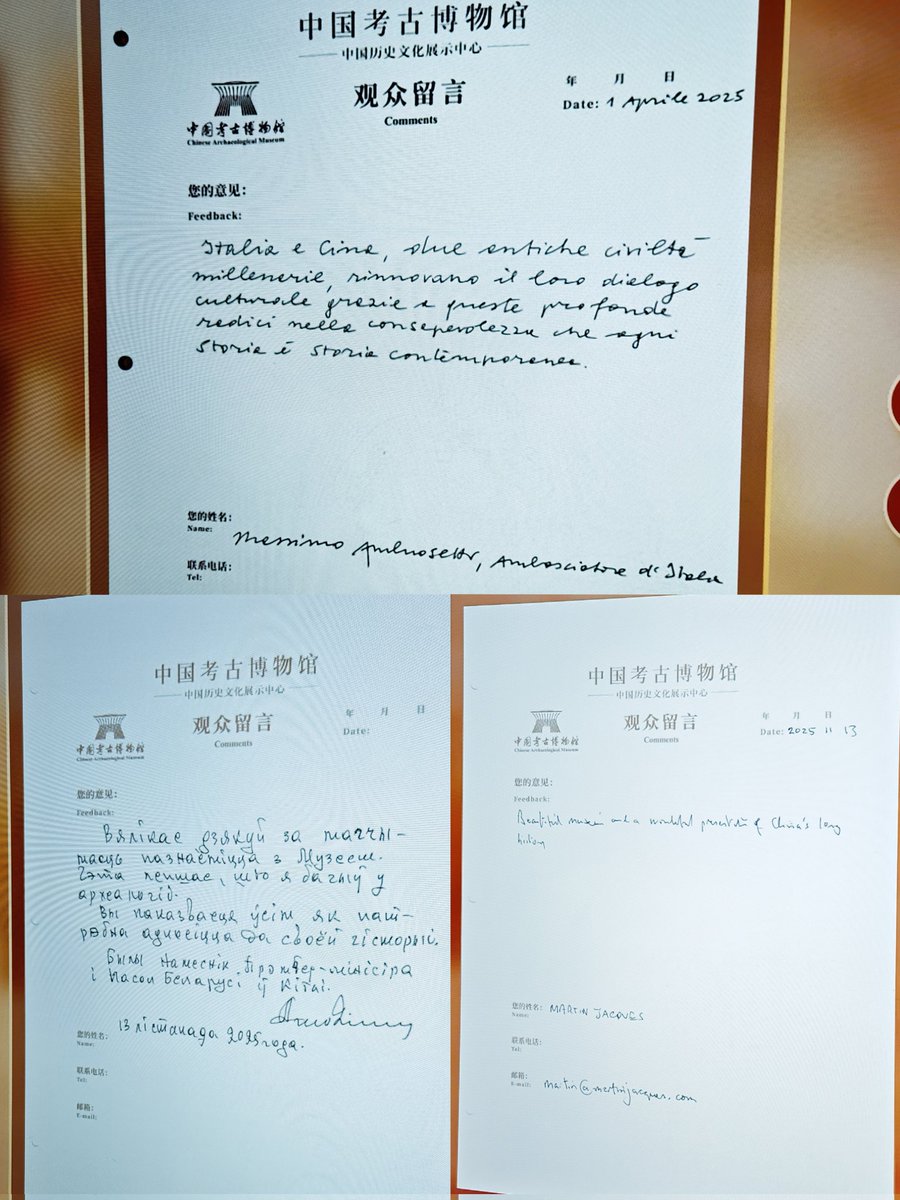 中国考古博物馆
中国历史文化展示中心
中国考古博物馆
Chinese Archaeological Museum
观众留言
Comments
年 月 日
Date: 1 Aprile 2025
您的意见：
Feedback:
Italia e Cina, due antiche civiltà
millenarie, rinnovano il loro dialogo
culturale grazie a queste profonde
radici nella consapevolezza che ogni
storia è storia contemporanea.
您的姓名：
Name:
Massimo Ambrosetti, Ambasciatore d'Italia
联系电话：
Tel:
中国考古博物馆
中国历史文化展示中心
中国考古博物馆
Chinese Archaeological Museum
观众留言
Comments
年 月 日
Date:
您的意见：
Feedback:
Вялікае дзякуй за магчы-
масць пазнаёміцца з Музеем.
Гэта лепшае, што я бачыў у
археалогіі.
Вы паказваеце ўсім, як пат-
рэбна адносіцца да своей гісторыі.
Былы намеснік Прэм'ер-міністра
і Пасол Беларусі ў Кітаі.
您的姓名：
Name:
13 лістапада 2025 года.
联系电话：
Tel:
邮箱：
E-mail:
中国考古博物馆
中国历史文化展示中心
中国考古博物馆
Chinese Archaeological Museum
观众留言
Comments
年 月 日
Date: 2025 11 13
您的意见：
Feedback:
Beautiful museum and a wonderful presentation of China's long
history
您的姓名：
Name:
MARTIN JACQUES
联系电话：
Tel:
邮箱：
E-mail:
martin@martinjacques.com